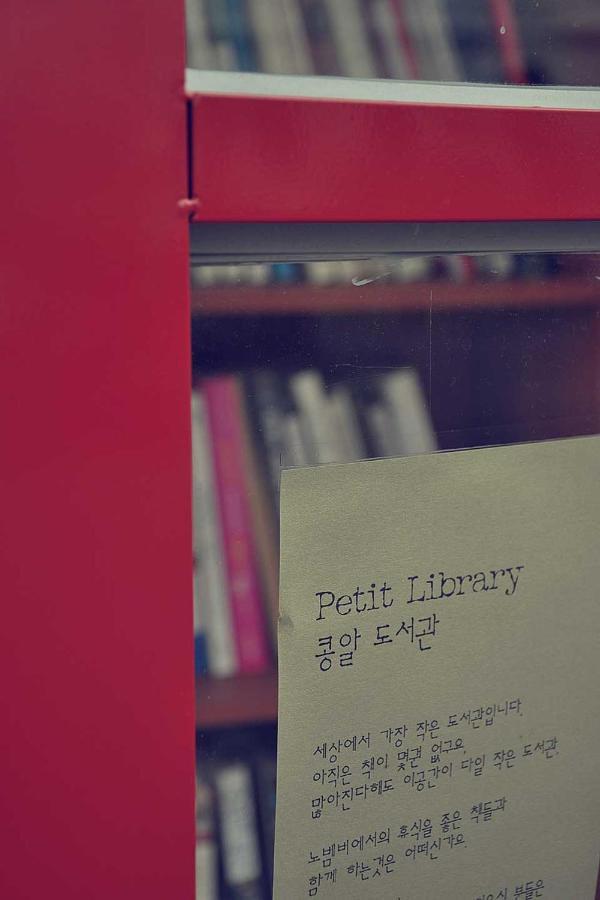 Petit Library
콩알 도서관
세상에서 가장 작은 도서관입니다.
아직은 책이 몇권 없구요,
많아진다해도 이공간이 다일 작은 도서관.
노벰버에서의 휴식을 좋은 책들과
함께 하는것은 어떠신가요.
분들은